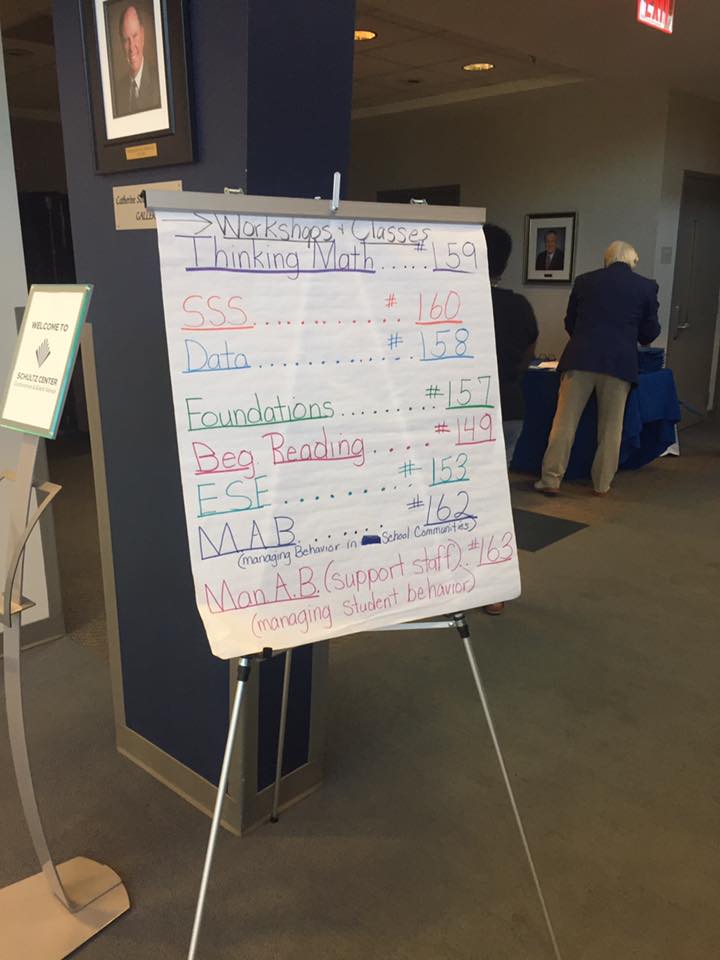 EXIT
Catherine
GALLE
WELCOME TO
SCHULTZ CENTER
→ Workshops + Classes
Thinking Math ..... #159
SSS............... # 160
Data ............... # 158
Foundations ......... #157
Beg. Reading .... #149
ESE ......... # 153
M.A.B. ........ #162
(managing Behavior in School Communities)
Man A.B. (support staff).. #163
(managing student behavior)